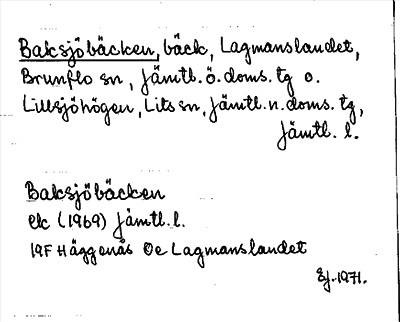 Baksjöbäcken, bäck, Lagmanslandet,
Brunflo sn, Jämtl. ö. doms. tg o.
Lillsjöhögen, Lits sn, Jämtl. n. doms. tg,
Jämtl. l.
Baksjöbäcken
ek (1969) Jämtl. l.
19F Häggenås Oe Lagmanslandet
Ej. 1971.